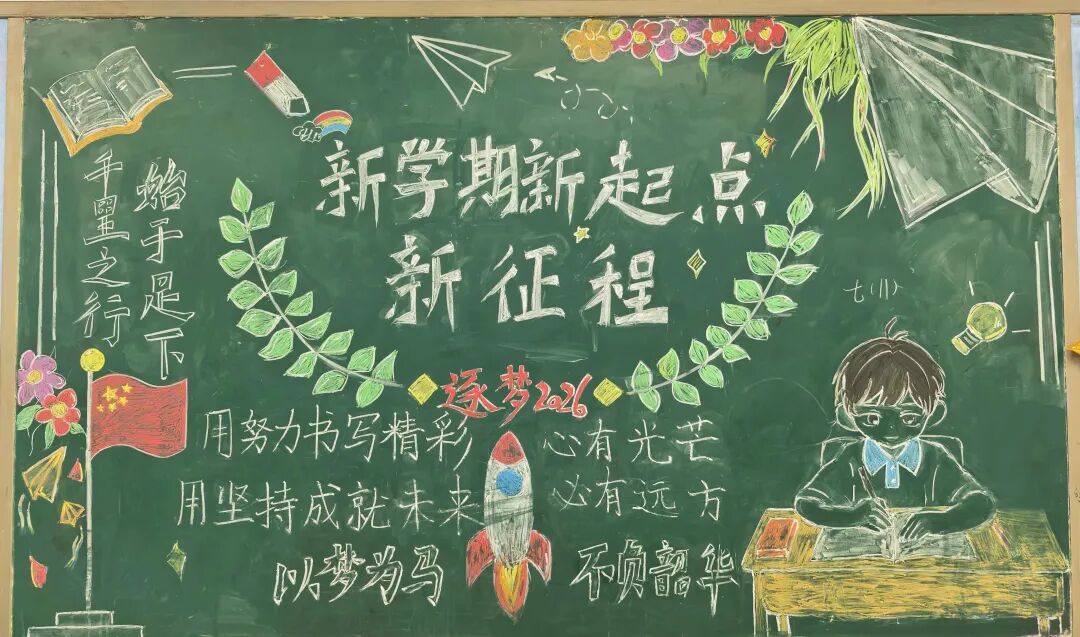 千里之行
始于足下
新学期新起点
新征程
七(11)
逐梦2026
用努力书写精彩
用坚持成就未来
心有光芒
必有远方
以梦为马
不负韶华